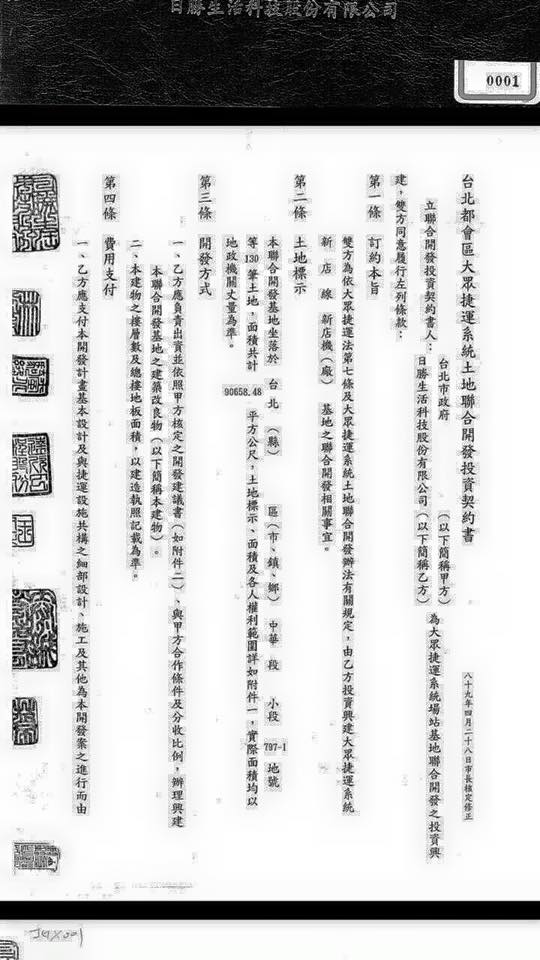 日勝生活科技股份有限公司
0001
台北都會區大眾捷運系統土地聯合開發投資契約書
八十九年四月二十八日市長核定修正
立聯合開發投資契約書人：
台北市政府（以下簡稱甲方）
日勝生活科技股份有限公司（以下簡稱乙方）
為大眾捷運系統場站基地聯合開發之投資興
建，雙方同意履行左列條款：
第一條 訂約本旨
雙方為依大眾捷運法第七條及大眾捷運系統土地聯合開發辦法有關規定，由乙方投資興建大眾捷運系統
新店線 新店機（廠） 基地之聯合開發相關事宜。
第二條 土地標示
本聯合開發基地坐落於 台北（縣） 區（市、鎮、鄉）中華段 小段 797-1 地號
等130筆土地，面積共計 90658.48 平方公尺，土地標示、面積及各人權利範圍詳如附件一，實際面積均以
地政機關丈量為準。
第三條 開發方式
一、乙方應負責出資並依照甲方核定之開發建議書（如附件二）、與甲方合作條件及分收比例，辦理興建
本聯合開發基地之建築改良物（以下簡稱本建物）。
二、本建物之樓層數及總樓地板面積，以建造執照記載為準。
第四條 費用支付
一、乙方應支付本開發計畫基本設計及與捷運設施共構之細部設計、施工及其他為本開發案之進行而由